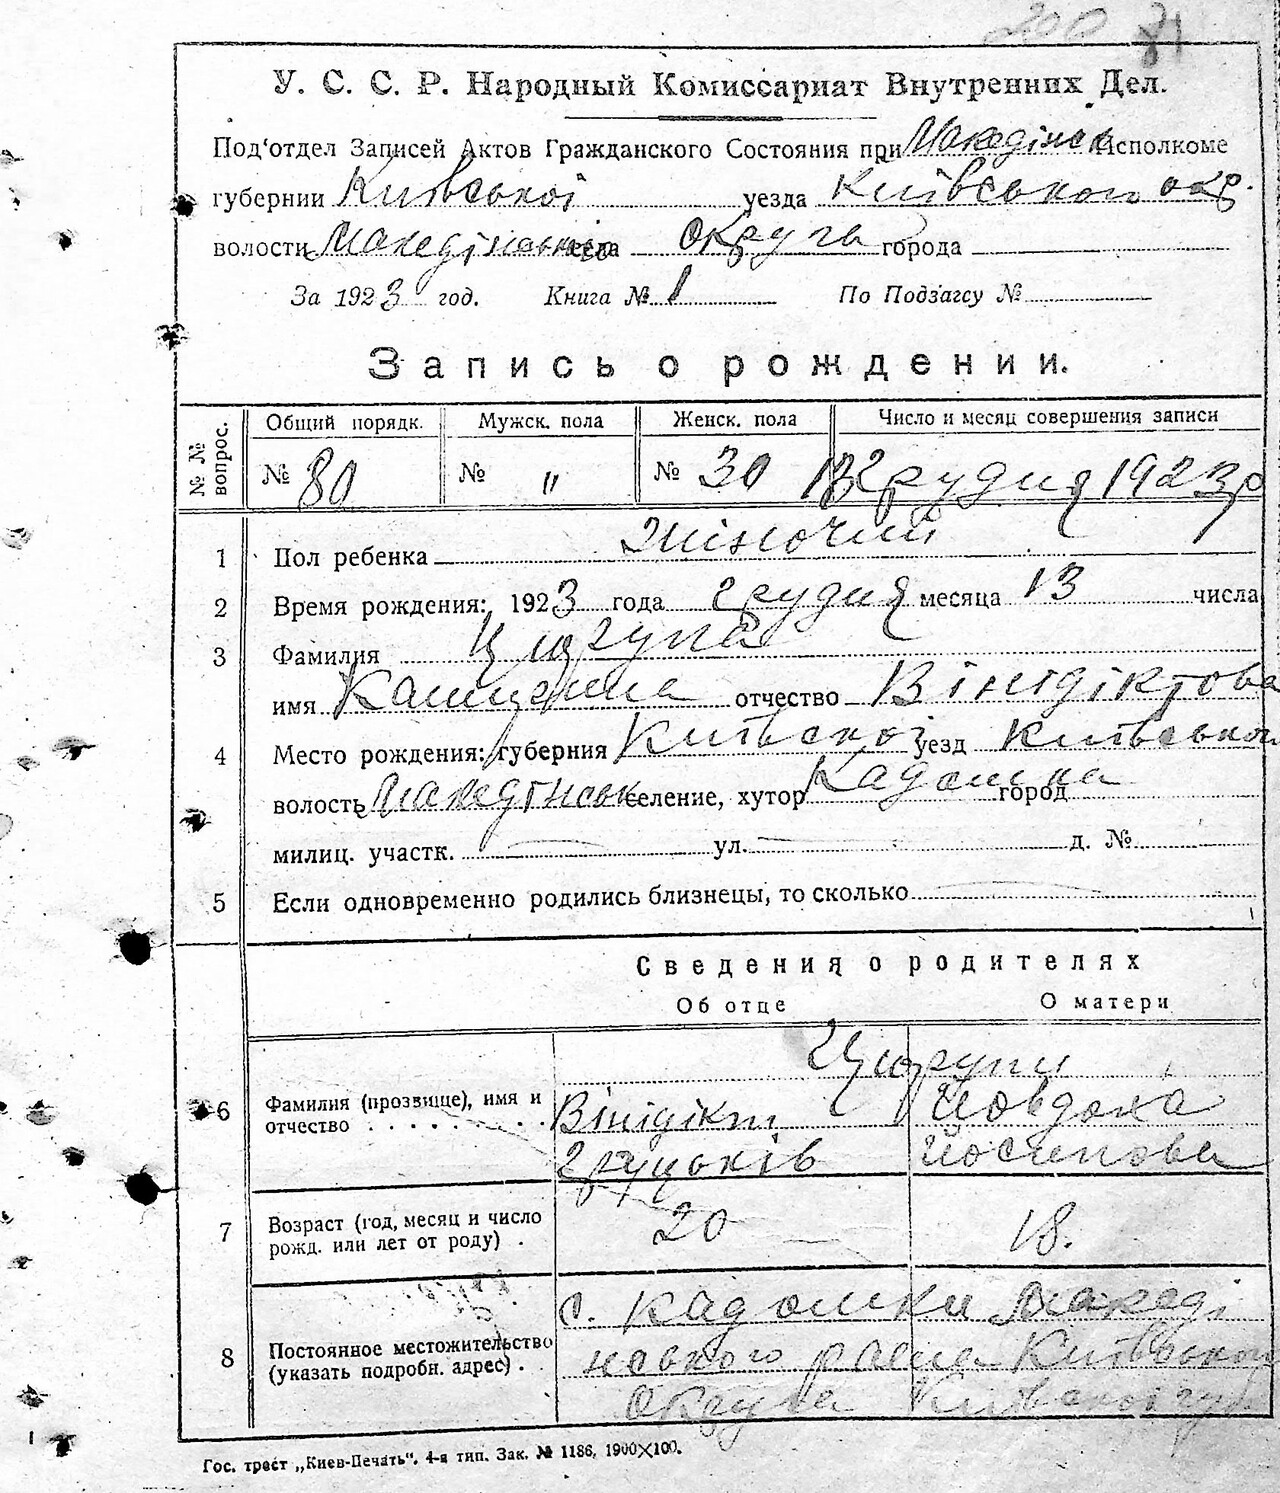 200 81
У. С. С. Р. Народный Комиссариат Внутренних Дел.
Под'отдел Записей Актов Гражданского Состояния при Македінськ Исполкоме
губернии Київської уезда Київського окр.
волости Македінської села Округы города
За 1923 год. Книга № 1 По Подзагсу №
Запись о рождении.
№ № вопрос. Общий порядк. Мужск. пола Женск. пола Число и месяц совершения записи
№ 80 № " № 30 13 Грудня 1923 р
1 Пол ребенка Жіночий
2 Время рождения: 1923 года грудня месяца 13 числа
3 Фамилия
имя отчество Вінідіктова
4 Место рождения: губерния Київської уезд Київської
волость Македінськ селение, хутор Кадомка город
милиц. участк. ул. д. №
5 Если одновременно родились близнецы, то сколько
Сведения о родителях
Об отце О матери
6 Фамилия (прозвище), имя и отчество
Вінідікт Йовдоха
Грицьків Йосипова
7 Возраст (год, месяц и число рожд. или лет от роду) . 20 18.
8 Постоянное местожительство (указать подробн. адрес) . .
с. Кадомки Македі
нського раена Київської
Округа Київської губ.
Гос. трест „Киев-Печать". 4-я тип. Зак. № 1186, 1900×100.